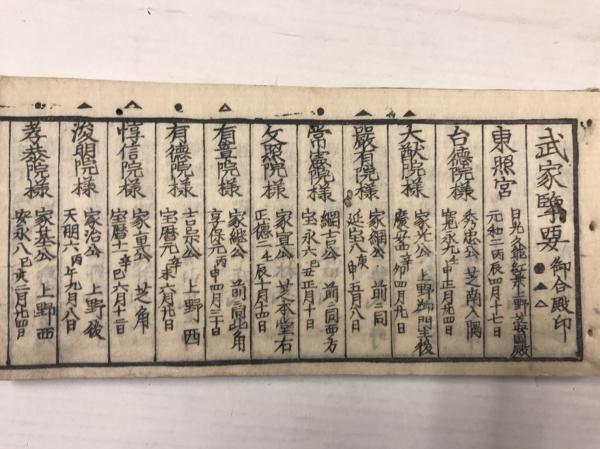 武家鑒要 御合殿印●▲△
東照宮
元和二丙辰四月十七日
台徳院様
秀忠公 芝南入隅
寛永九壬申正月廿四日
大猷院様
家光公 上野御門主後
慶安四辛卯四月廿日
嚴有院様
家綱公 前ニ同
延宝八庚申五月八日
常憲院様
綱吉公 前ニ同西方
宝永六己丑正月十日
文照院様
家宣公 芝本堂右
正徳二壬辰十月十四日
有章院様
家継公 前ニ同北角
享保元丙申四月三十日
有徳院様
吉宗公 上野西
宝暦元辛未六月廿日
惇信院様
家重公 芝角
宝暦十一辛巳六月十二日
浚明院様
家治公 上野後
天明六丙午九月八日
孝恭院様
家基公 上野西
安永八己亥二月廿四日